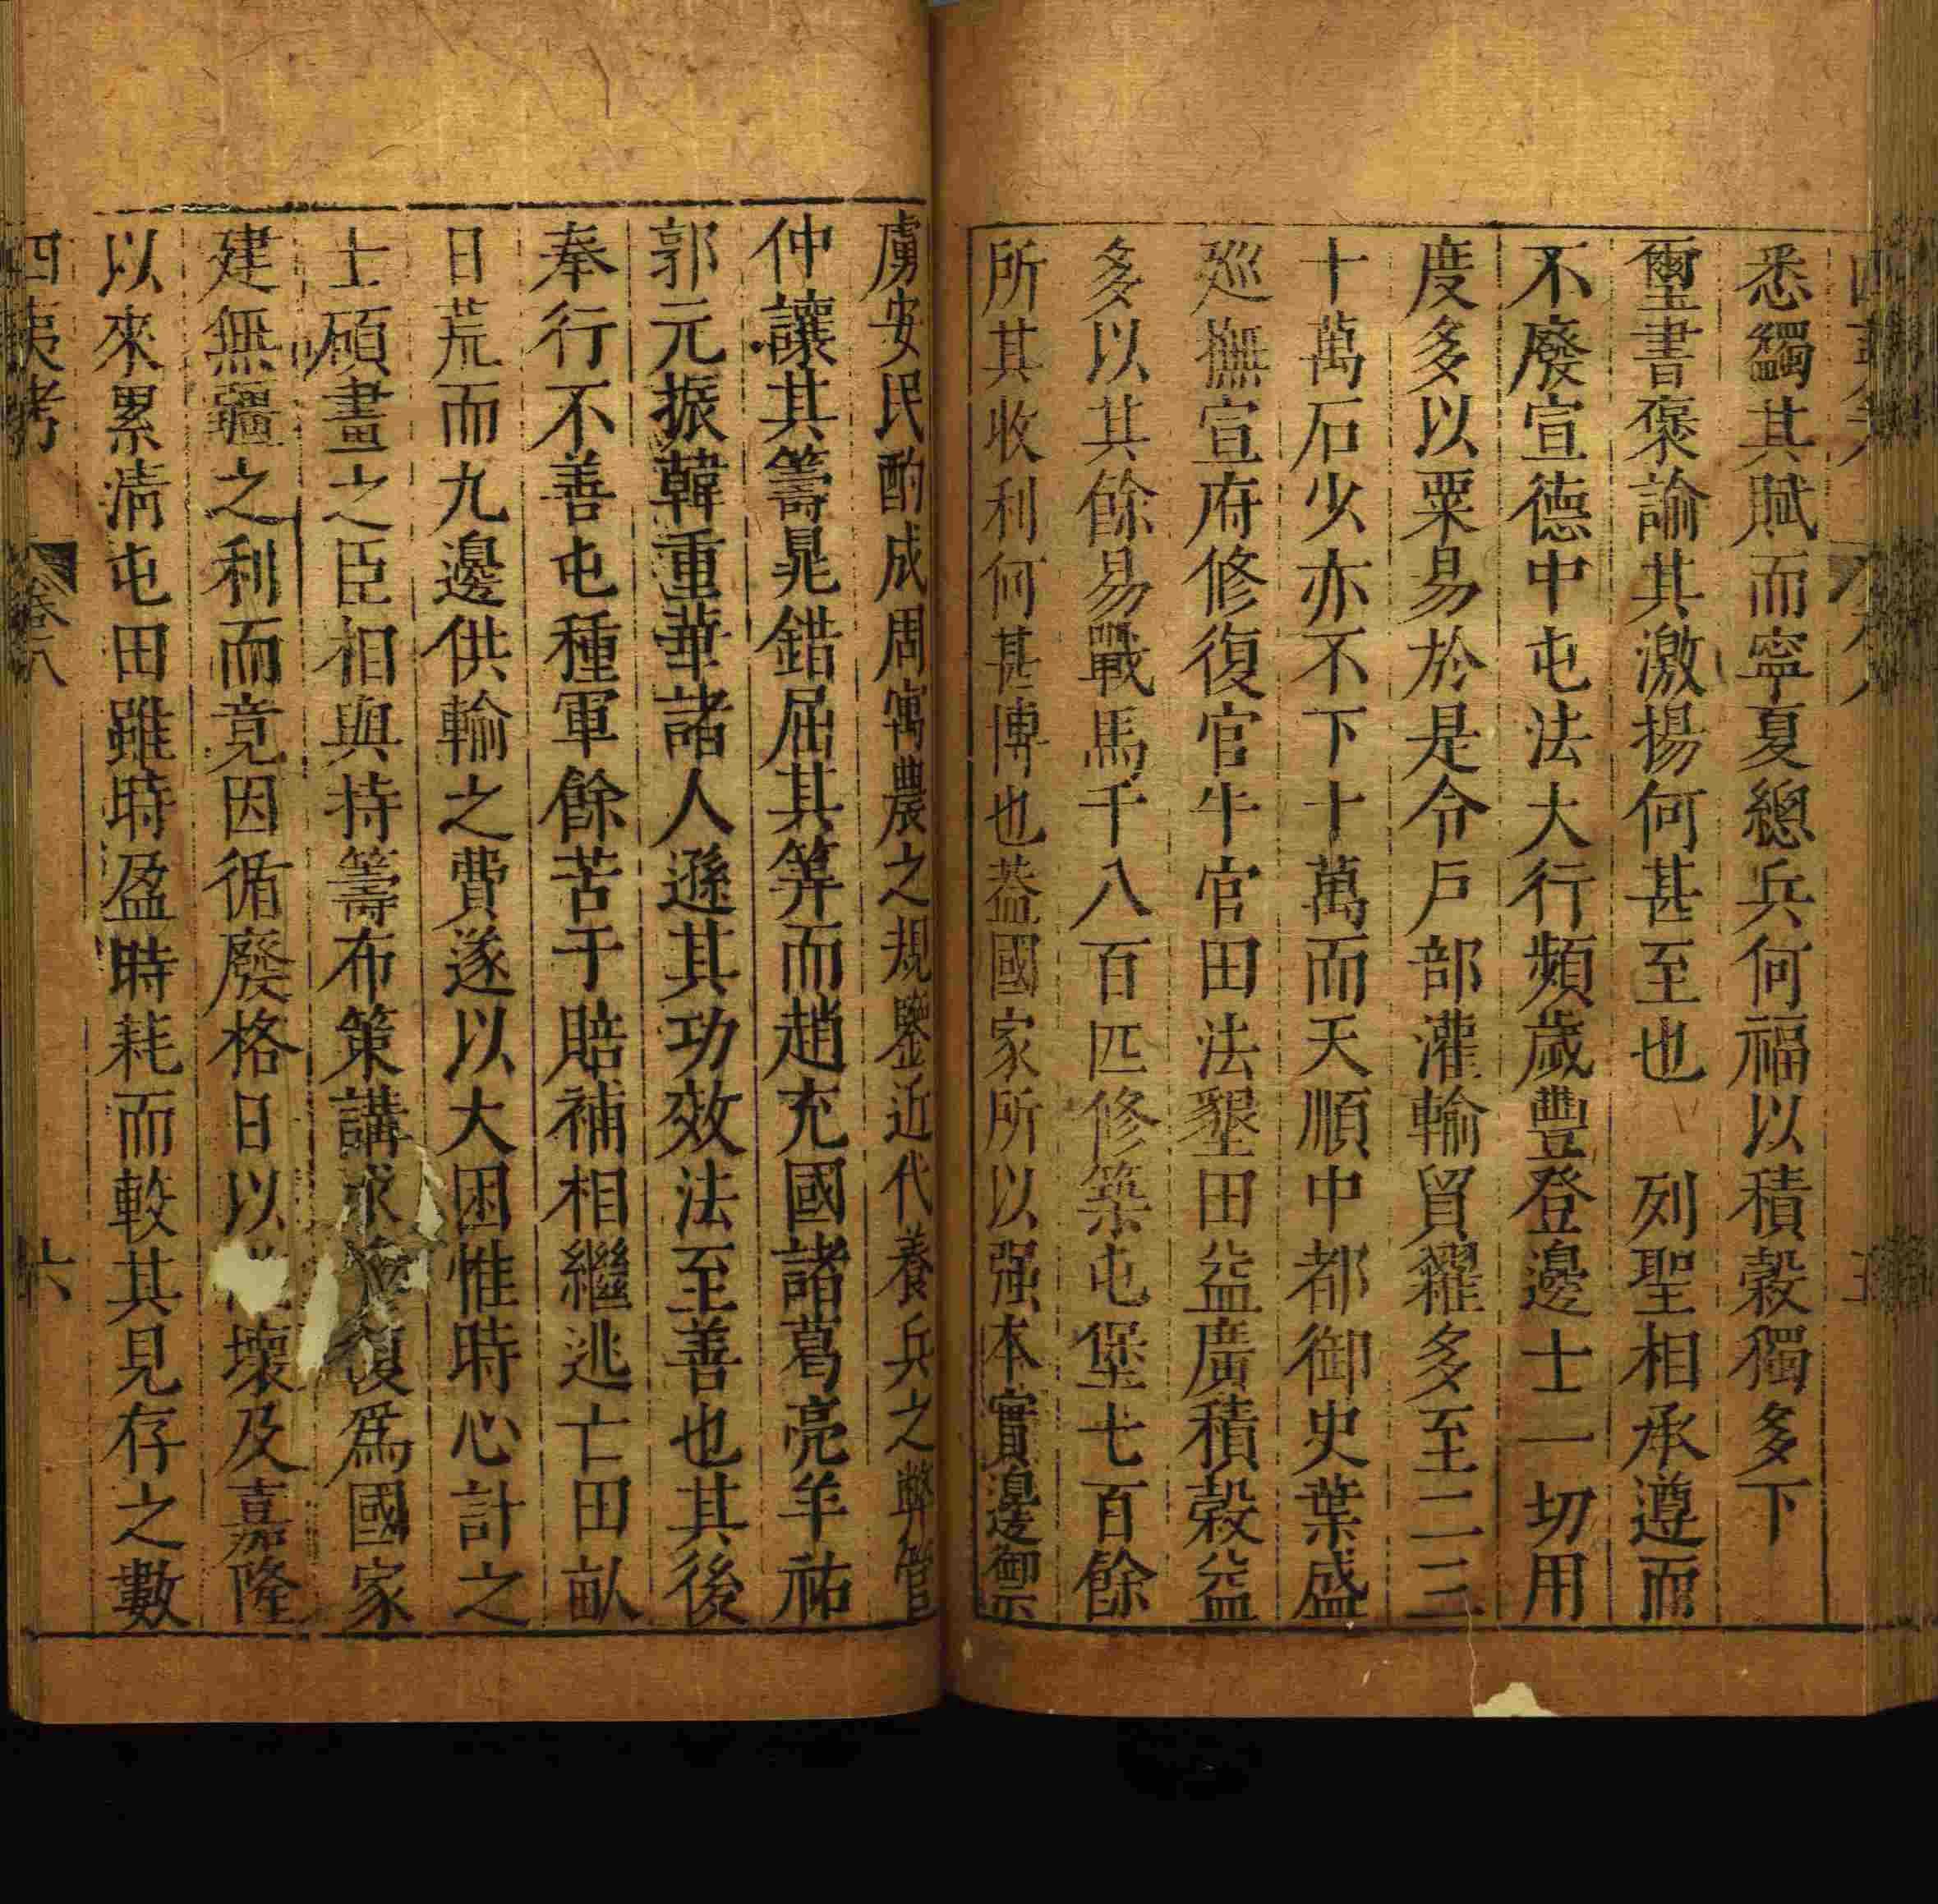 悉蠲其賦而寧夏總兵何福以積穀獨多下
璽書褒諭其激揚何甚至也　列聖相承遵而
不廢宣德中屯法大行頻歲豐登邊士一切用
度多以粟易於是令戶部灌輸貿糴多至二三
十萬石少亦不下十萬而天順中都御史葉盛
廵撫宣府修復官牛官田法墾田益廣積穀益
多以其餘易戰馬千八百匹修築屯堡七百餘
所其收利何甚博也葢國家所以强本實邊御
虜安民酌成周寓農之規鑒近代養兵之弊管
仲讓其籌晁錯屈其筭而趙充國諸葛亮羊祜
郭元振韓重華諸人遜其功效法至善也其後
奉行不善屯種軍餘苦于賠補相繼逃亡田畝
日荒而九邊供輸之費遂以大困惟時心計之
士碩畫之臣相與持籌布策講求復爲國家
建無疆之利而竟因循廢格日以壞及嘉隆
以來累淸屯田雖時盈時耗而較其見存之數
四夷考　卷八　六